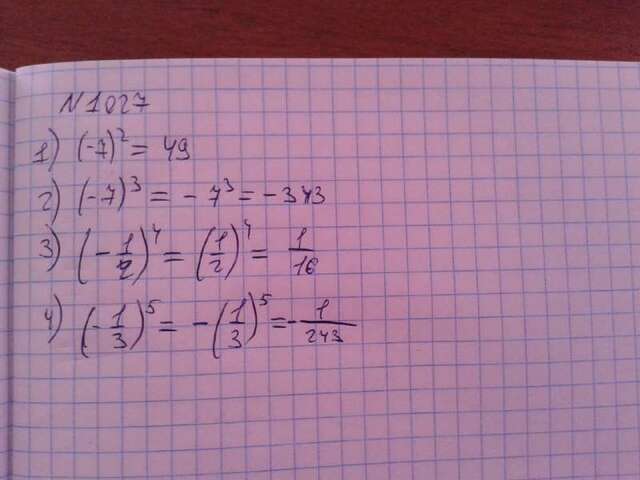 N 1027
1) (-7)² = 49
2) (-7)³ = - 7³ = - 343
3) (- 1/2)⁴ = (1/2)⁴ = 1/16
4) (- 1/3)⁵ = - (1/3)⁵ = - 1/243